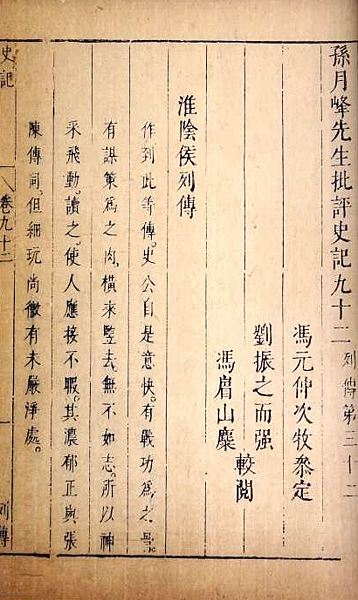 孫月峰先生批評史記九十二 列傳第三十二
馮元仲次牧叅定
劉振之而强
馮眉山麋
較閱
淮陰侯列傳
作到此等傳。史公自是意快。有戰功為之骨。
有謀策為之肉。橫來竪去。無不如志。所以神
采飛動。讀之使人應接不暇。其濃郁正與張
陳傳同。但細玩尚微有未嚴淨處。
史記
卷九十二
列傳